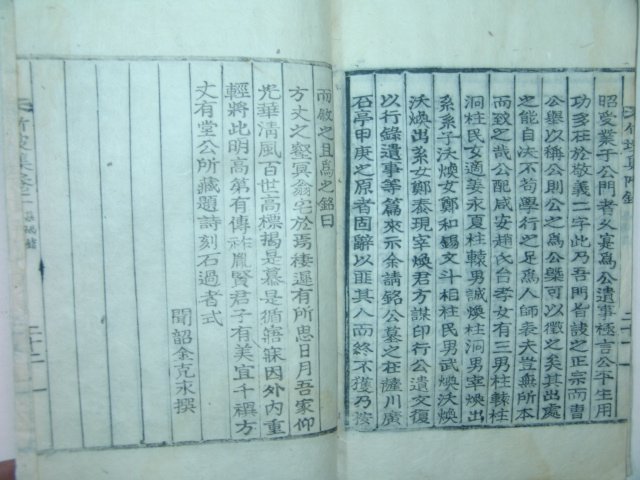 昭受業子公門者久寔爲公遺事極言公平生用
功多在於敬義二字此乃吾門皆諼之正宗而書
公舉以稱公則公之爲公槩可以徵之矣其出處
之能自決不苟學行之足爲人師表夫豈無所本
而致之哉公配咸安趙氏台孝女有三男柱轅柱
洞柱民女適婁永夏柱轅男誠煥柱洞男宰煥出
系系子汰煥女鄭和錫文斗相柱民男武煥汰煥
汰煥出系女鄭泰現宰煥君方謀印行公遺文復
以行錄遺事等篇來示余請銘公墓之在薩川廣
石亭甲庚之原者固辭以匪其人而終不獲乃按
而敘之且爲之銘曰
方丈之壑冥翁宅於焉棲遲有所思日月吾家仰
光華淸風百世高標揭是慕是循寤寐因外內重
輕將此明高第有傳祚胤賢君子有美宜千禩方
丈有堂公所藏題詩刻石過者式
聞韶金克永撰